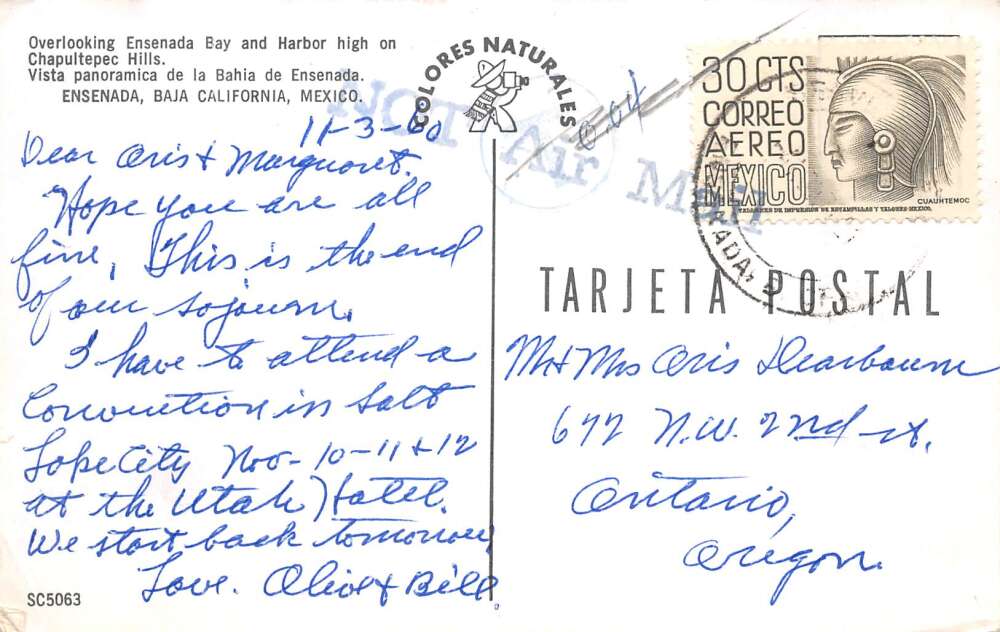 Overlooking Ensenada Bay and Harbor high on
Chapultepec Hills.
Vista panoramica de la Bahia de Ensenada.
ENSENADA, BAJA CALIFORNIA, MEXICO.
COLORES NATURALES
NOT Air Mail
0.04
30 CTS
CORREO
AEREO
MEXICO
CUAUHTEMOC
TALLERES DE IMPRESION DE ESTAMPILLAS Y VALORES-MEXICO.
11-3-60
Dear Oris & Marguaret.
Hope you are all
fine, This is the end
of our sojourn.
I have to attend a
Convention in Salt
Lake City Nov-10-11 & 12
at the Utah Hotel.
We start back tomorrow,
Love. Olive & Bill
TARJETA POSTAL
Mr & Mrs Oris Dearbourne
672 N.W. 2nd st.
Ontario,
Oregon.
SC5063